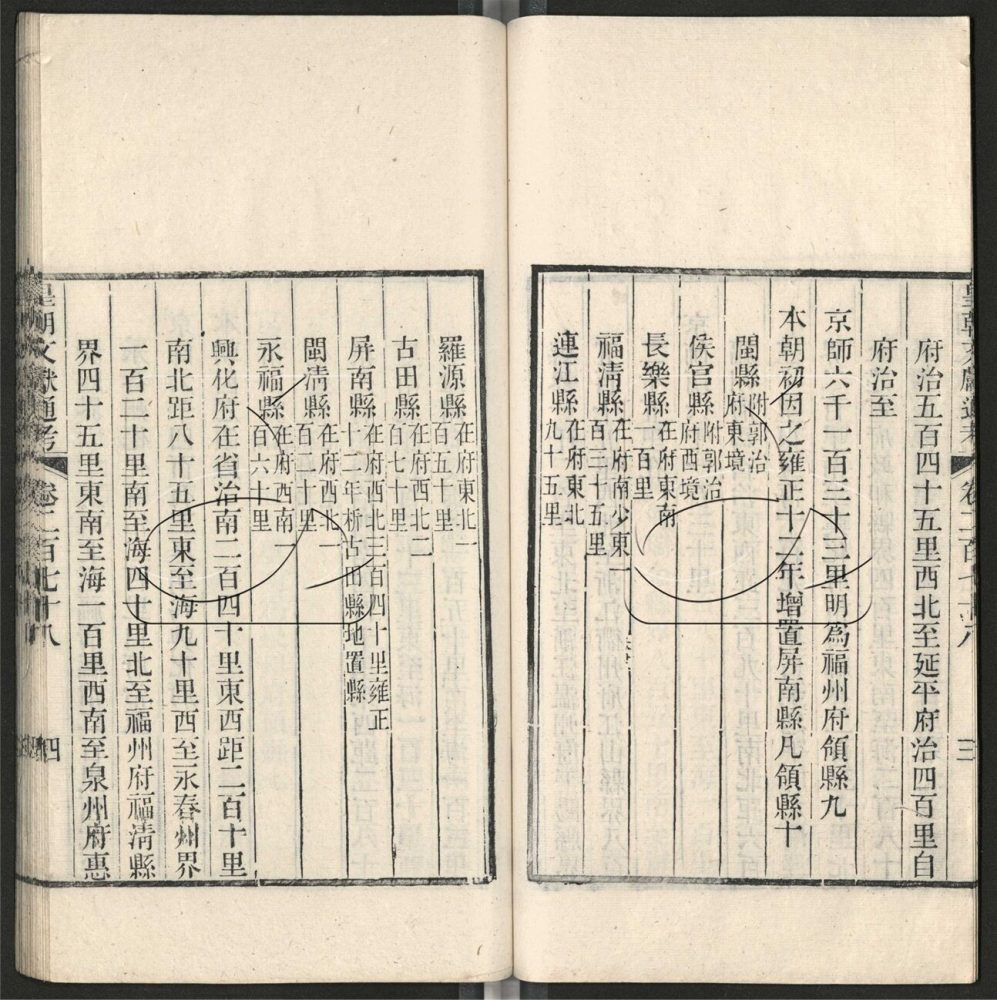 府治五百四十五里西北至延平府治四百里自
府治至
京師六千一百三十三里明爲福州府領縣九
本朝初因之雍正十二年增置屏南縣凡領縣十
閩縣附郭治府東境
侯官縣附郭治府西境
長樂縣在府東南一百里
福淸縣在府南少東一百三十五里
連江縣在府東北九十五里
皇朝文獻通考 卷二百七十八 三
羅源縣在府東北一百五十里
古田縣在府西北二百七十里
屏南縣在府西北三百四十里雍正十二年析古田縣地置縣
閩淸縣在府西北一百二十里
永福縣在府西南一百六十里
興化府在省治南二百四十里東西距二百十里
南北距八十五里東至海九十里西至永春州界
一百二十里南至海四十里北至福州府福淸縣
界四十五里東南至海一百里西南至泉州府惠
皇朝文獻通考 卷二百七十八 四